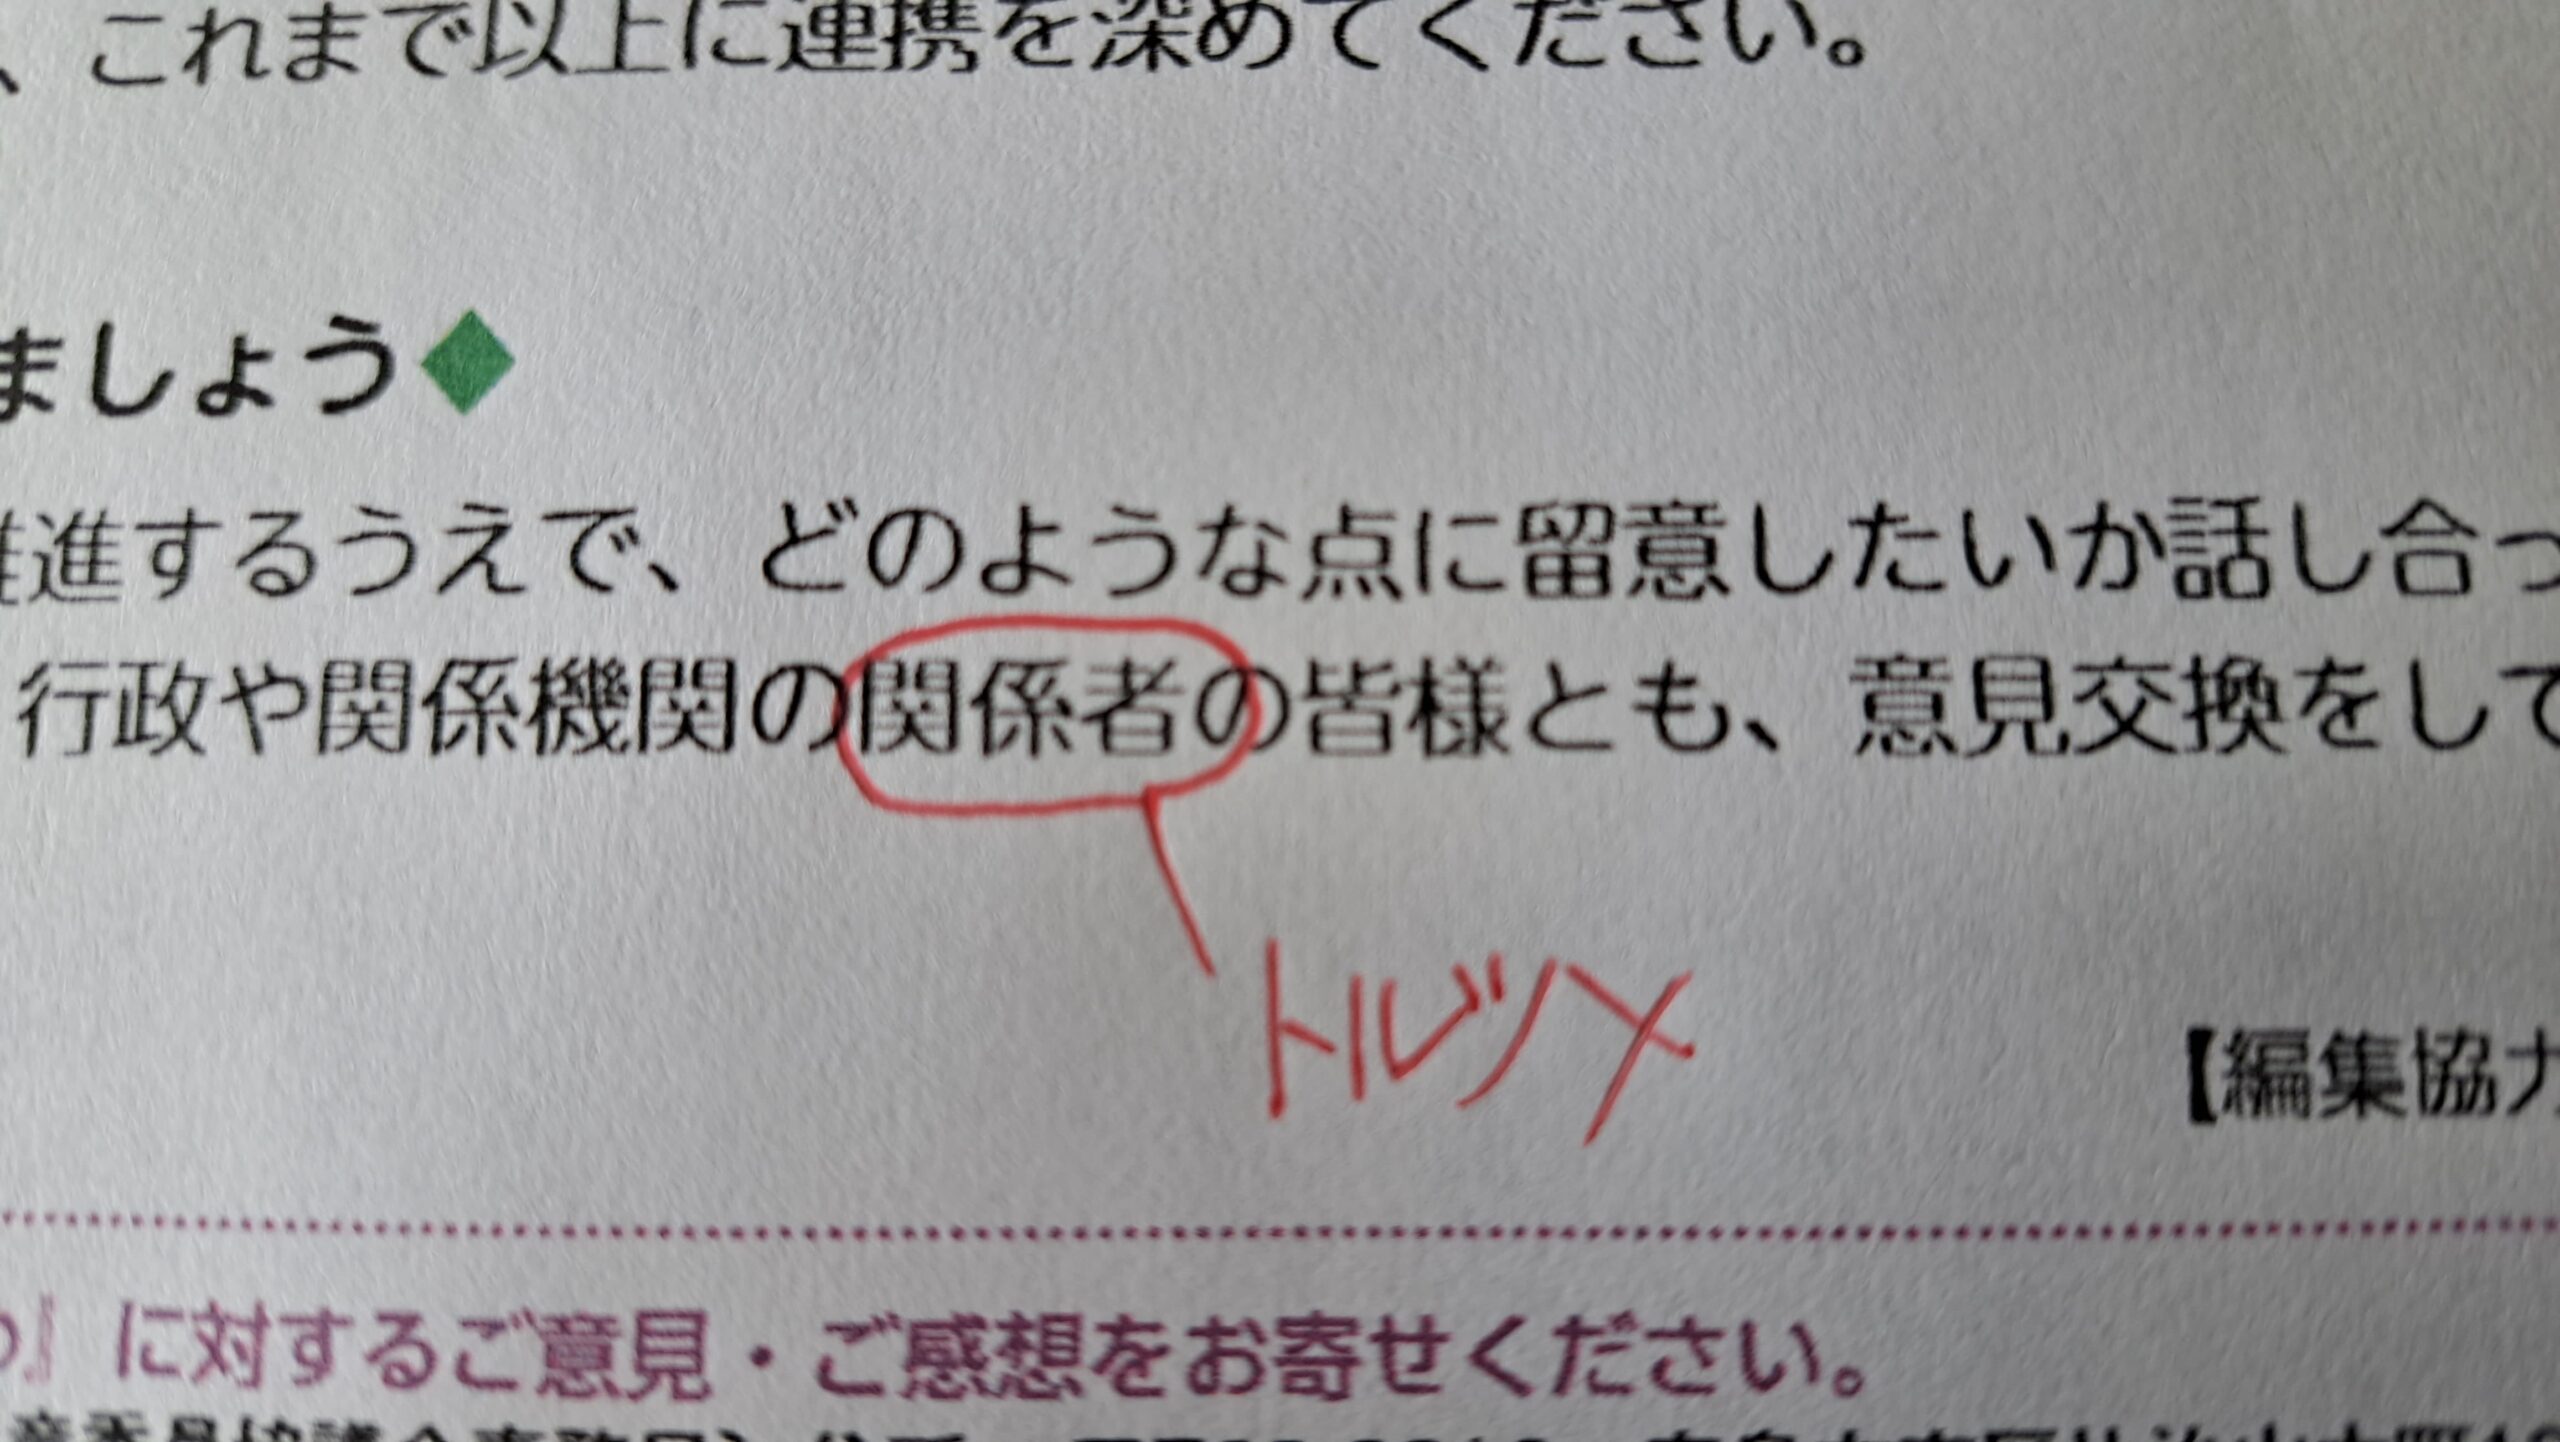 、これまで以上に連携を深めてください。
ましょう◆
推進するうえで、どのような点に留意したいか話し合っ
行政や関係機関の関係者の皆様とも、意見交換をして
トルツメ
【編集協力
』に対するご意見・ご感想をお寄せください。